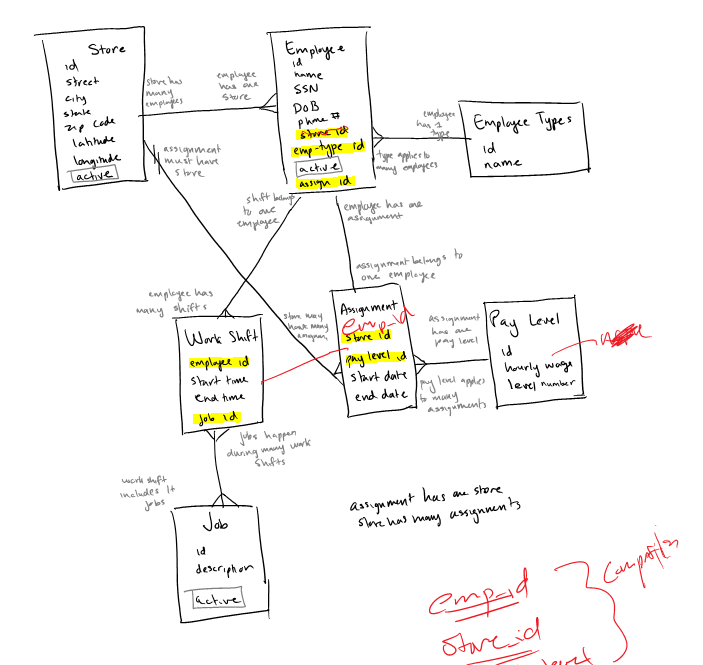 Store
id
street
city
state
zip code
latitude
longitude
active
store has
many
employees
employee
has one
store
Employee
id
name
SSN
DoB
phone #
store id
emp-type id
active
assign id
employee
has 1
type
type applies to
many employees
Employee Types
id
name
assignment
must have
store
shift belongs
to one
employee
employee has one
assignment
assignment belongs to
one employee
employee has
many shifts
store may
have many
Work Shift
employee id
start time
end time
job id
Assignment
emp_id
store id
pay level id
start date
end date
assignment
has one
pay level
pay level applies
to many
assignments
Pay Level
id
hourly wage
level number
jobs happen
during many work
shifts
work shift
includes 1+
jobs
Job
id
description
active
assignment has one store
store has many assignments
emp_id
store_id
level